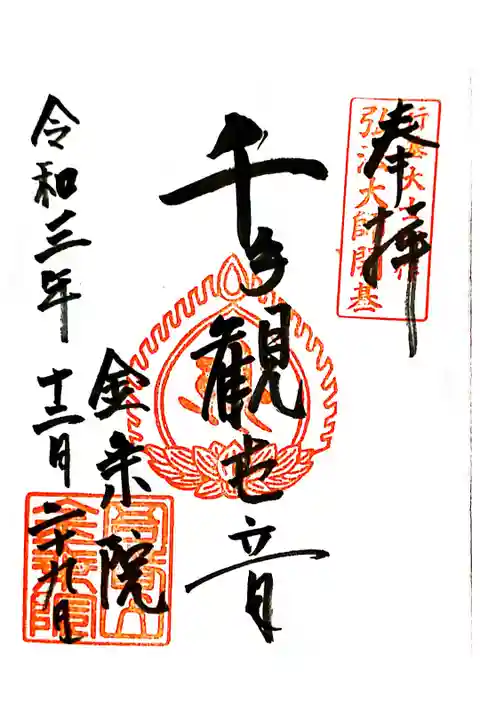 奉拝
弘法大師開基
千手観世音
金乗院
令和三年
十二月二十九日